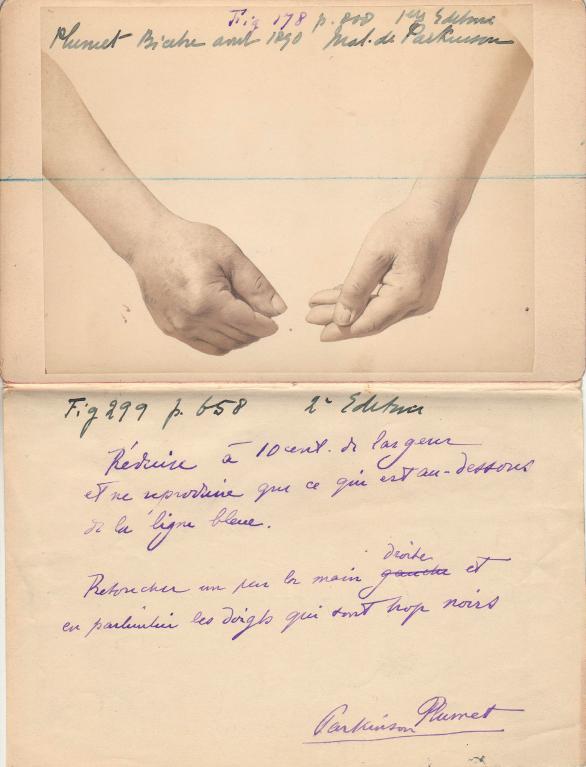 Fig 178 p. 808 1ère Edition
Plumet Bicêtre avril 1890 Mal. de Parkinson
Fig 299 p. 658 2e Edition
Réduire à 10 cent. de largeur
et ne reproduire que ce qui est au-dessous
de la ligne bleue.
droite
Retoucher un peu la main gauche et
en particulier les doigts qui sont trop noirs
Parkinson Plumet